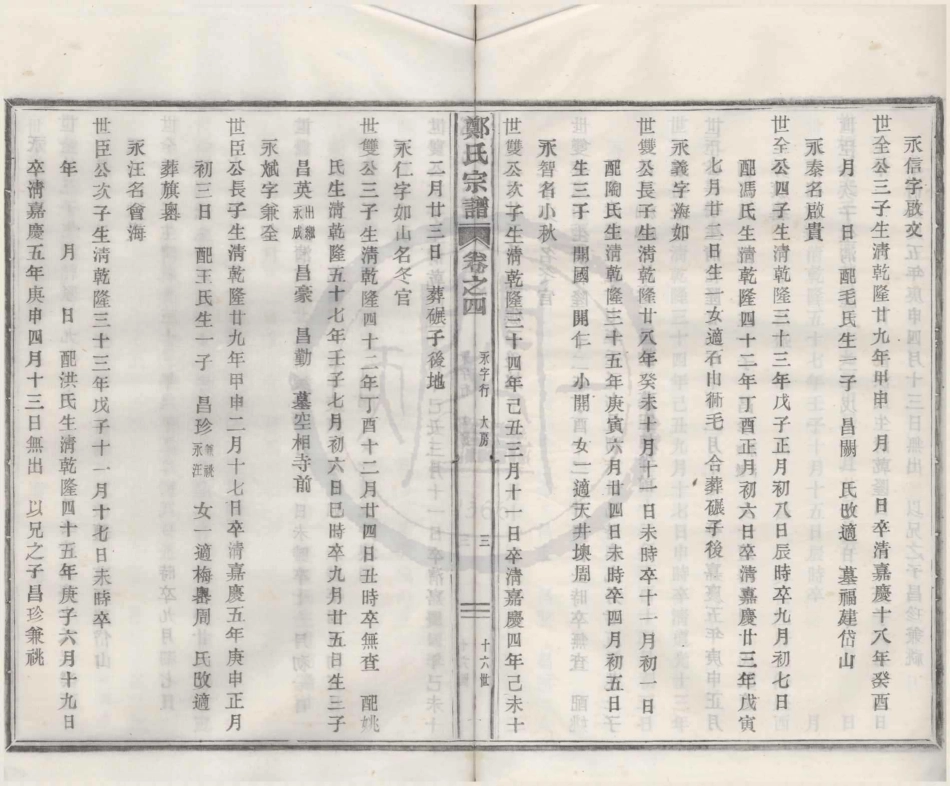 永信字啟文
世全公三子生清乾隆廿九年甲申 月 日卒清嘉慶十八年癸酉
月 日 配毛氏生一子 昌關 氏改適 墓福建岱山
永泰名啟貴
世全公四子生清乾隆三十三年戊子正月初八日辰時卒九月初七日
配馮氏生清乾隆四十二年丁酉正月初六日卒清嘉慶廿三年戊寅
七月廿二日生一女適石山衕毛 合葬碾子後
永義字海如
世雙公長子生清乾隆廿八年癸未十月十一日未時卒十一月初一日
配陶氏生清乾隆三十五年庚寅六月廿四日未時卒四月初五日子
生三子 開國 開仁 小開 女一適天井墺周
永智名小秋
世雙公次子生清乾隆三十四年己丑三月十一日卒清嘉慶四年己未十
鄭氏宗譜 卷之四 永字行 大房 三 十六世
二月廿三日 葬碾子後地
永仁字如山名冬官
世雙公三子生清乾隆四十二年丁酉十二月廿四日丑時卒無查 配姚
氏生清乾隆五十七年壬子七月初六日巳時卒九月廿五日生三子
昌英出繼永成 昌豪 昌勤 墓空相寺前
永斌字兼全
世臣公長子生清乾隆廿九年甲申二月十七日卒清嘉慶五年庚申正月
初三日 配王氏生一子 昌珍兼祧永汪 女一適梅嶴周 氏改適
葬旗嶴
永汪名會海
世臣公次子生清乾隆三十三年戊子十一月十七日未時卒
年 月 日 配洪氏生清乾隆四十五年庚子六月十九日
卒清嘉慶五年庚申四月十三日無出 以兄之子昌珍兼祧